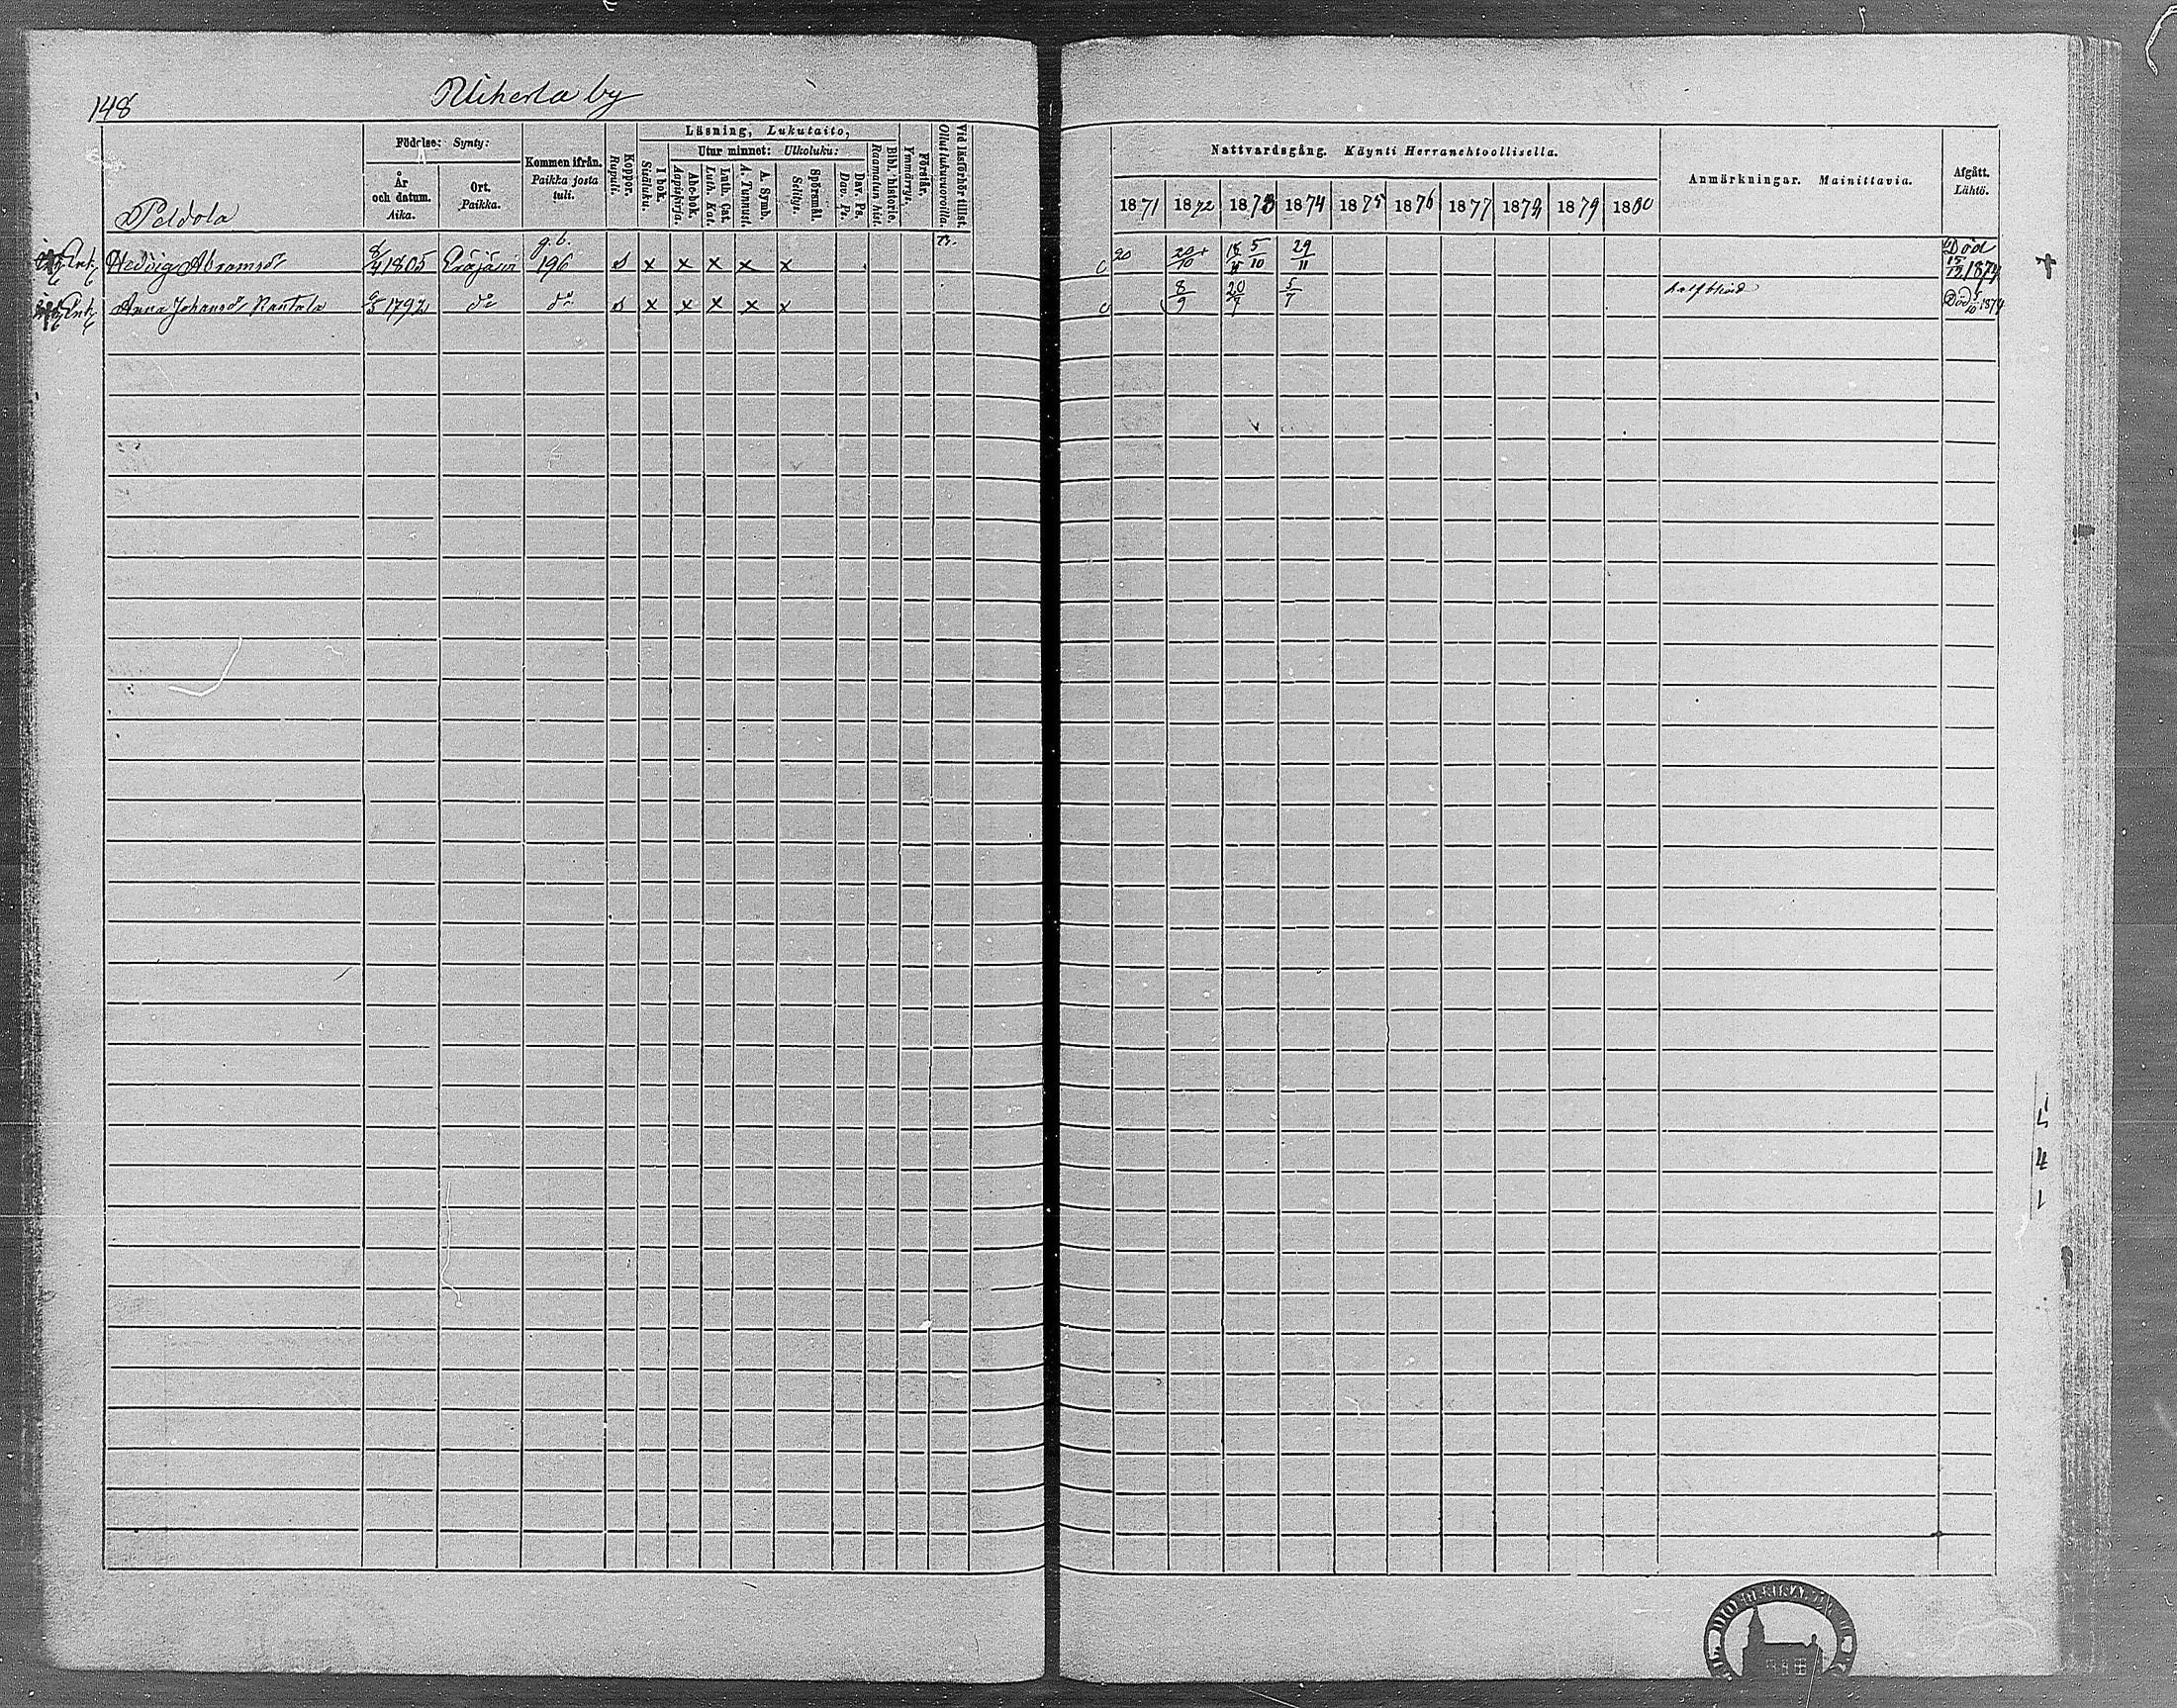 148
Uiherla by
Födelse: Synty:
Kommen ifrån.
Paikka josta tuli.
Koppor.
Rupuli.
Läsning, Lukutaito,
Utur minnet: Ulkoluku:
I bok.
Sisäluku.
Abc-bok.
Aapiskirja.
Luth. Cat.
Luth. Kat.
A. Symb.
A. Tunnust.
Spörsmål.
Selitys.
Dav. Ps.
Dav. Ps.
Bibl. historie.
Raamatun hist.
Förstår.
Ymmärrys.
Vid läsförhör tillst.
Ollut lukuvuoroilla.
År och datum.
Aika.
Ort.
Paikka.
Peldola
Nattvardsgång. Käynti Herranehtoollisella.
1871 1872 1873 1874 1875 1876 1877 1878 1879 1880
Anmärkningar. Mainittavia.
Afgått.
Lähtö.
Enk. Hedvig Abramsdr 8/4 1805 Eräjärvi g.b. 196 s x x x x x 73.
20 20/10 + 5/10 29/11 Död 15/12 1874 +
Enk. Anna Johansdr Rantala 1792 do do s x x x x x
8/9 20/7 5/7 Död 1874